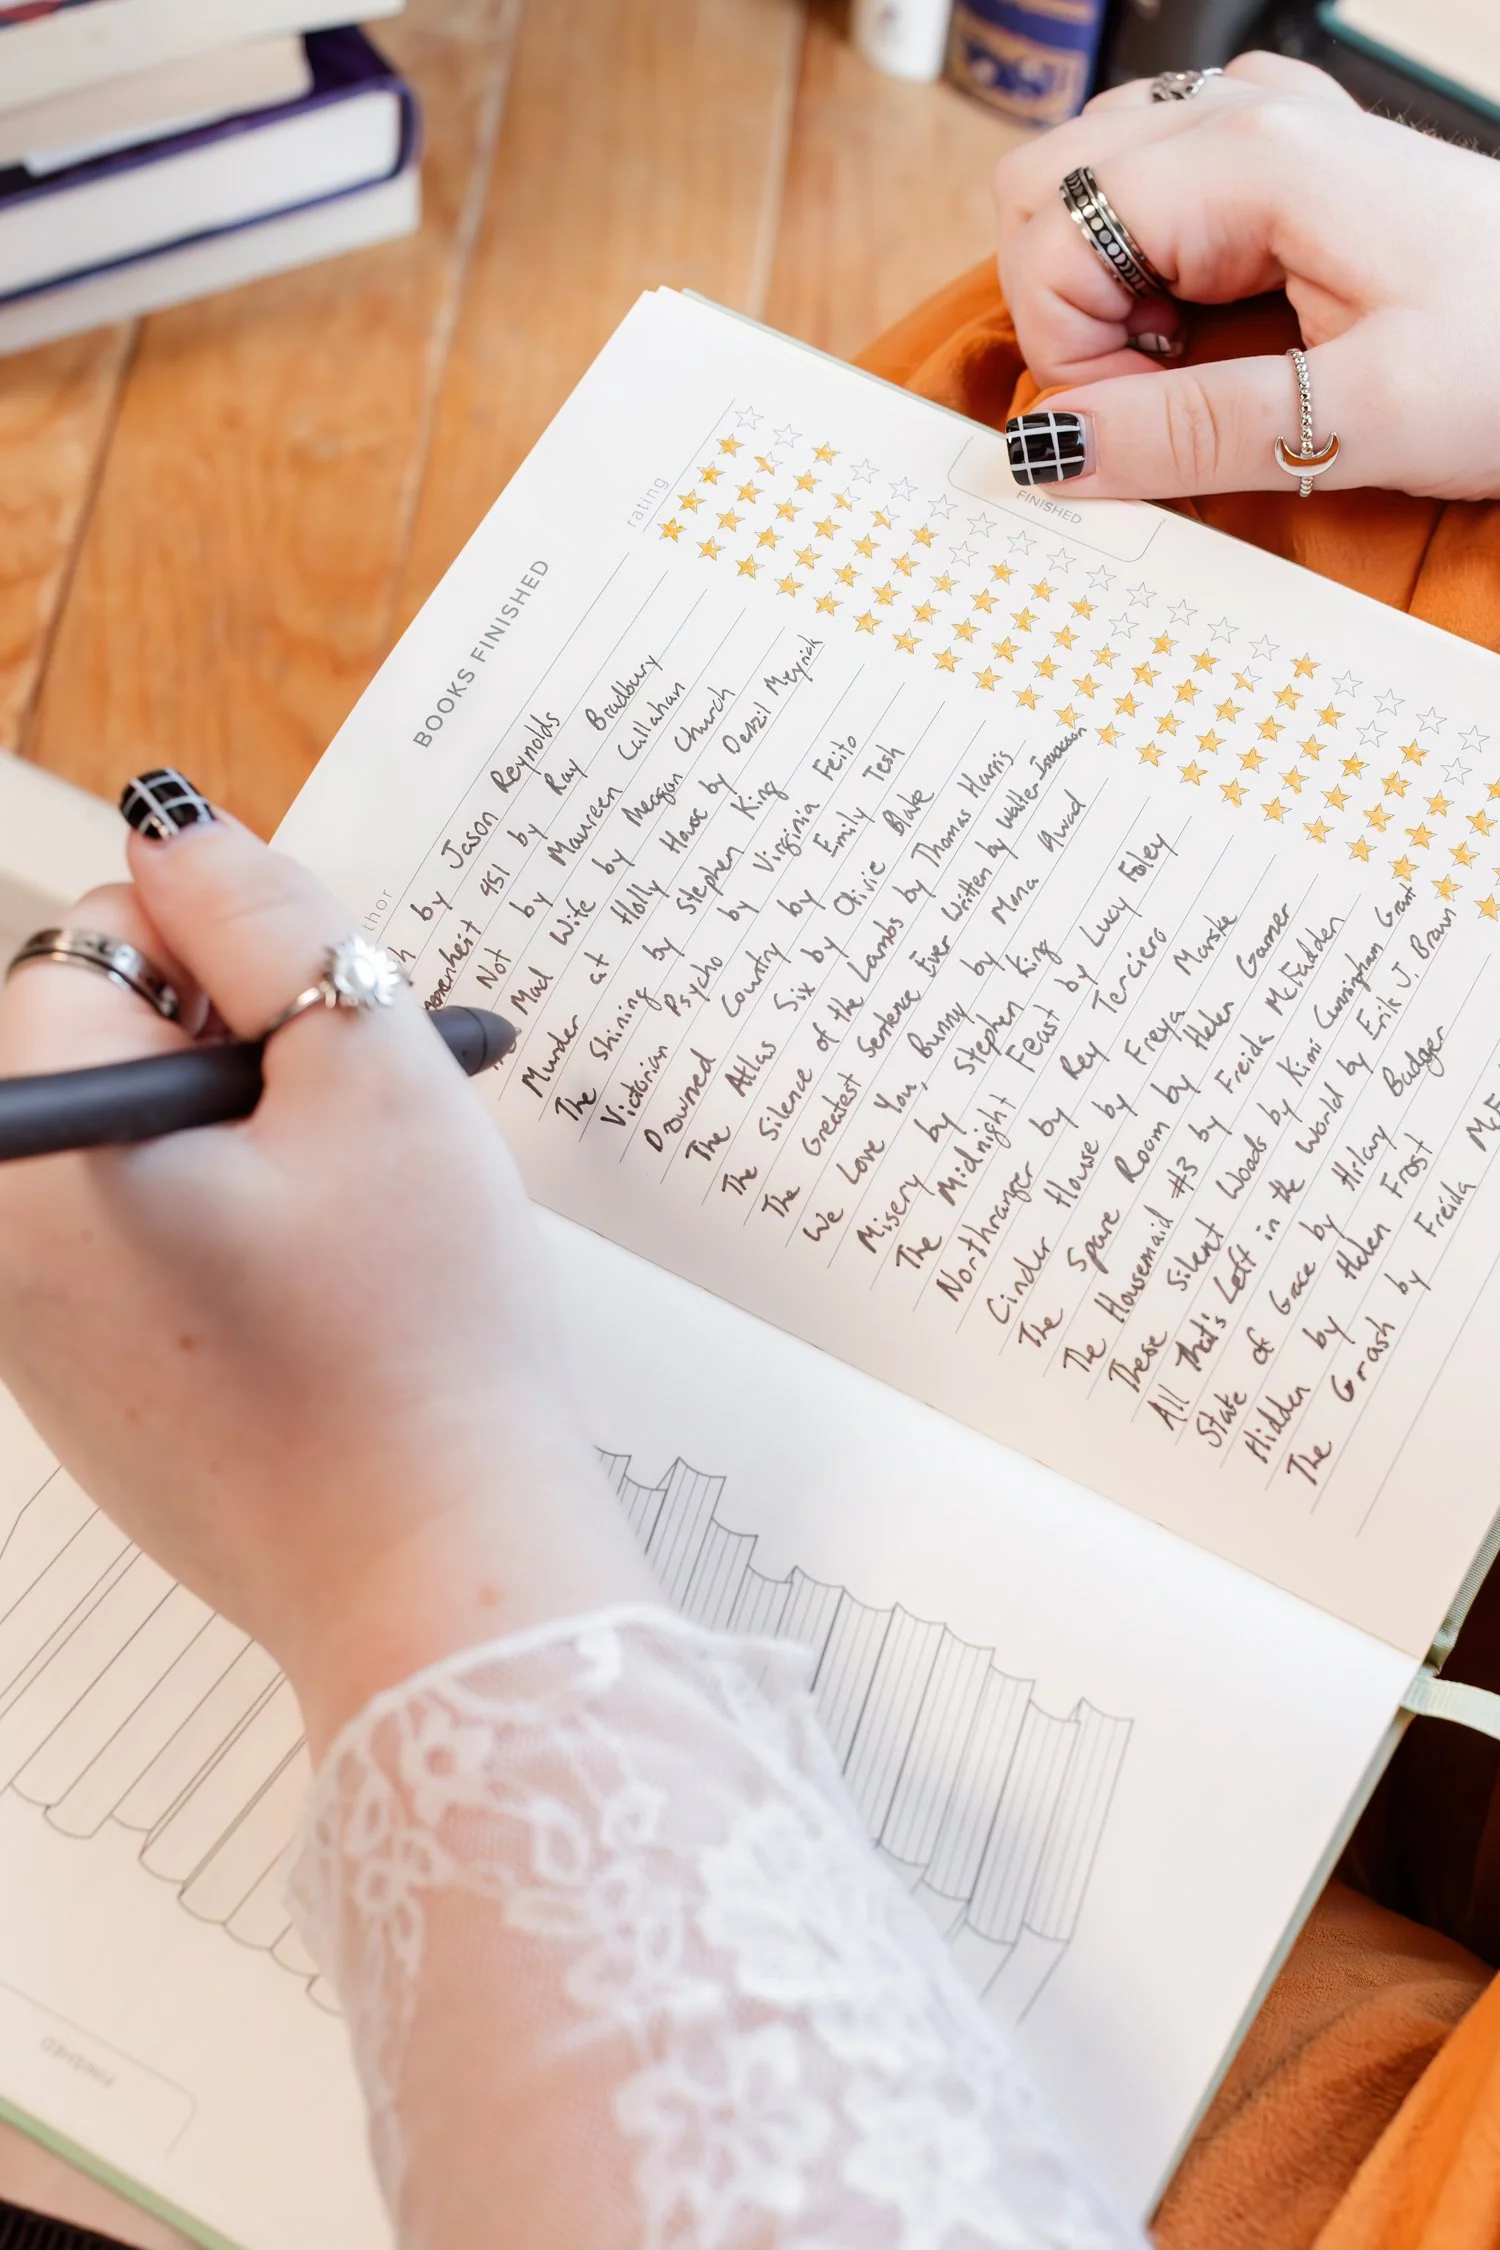 BOOKS FINISHED
rating
FINISHED
by Jason Reynolds
451 by Ray Bradbury
Not by Maureen Callahan
Mad Wife by Meagan Church
Murder at Holly House by Denzil Meyrick
The Shining by Stephen King
Victorian Psycho by Virginia Feito
Drowned Country by Emily Tesh
The Atlas Six by Olivie Blake
The Silence of the Lambs by Thomas Harris
The Greatest Sentence Ever Written by Walter Isaacson
We Love You, Bunny by Mona Awad
Misery by Stephen King
The Midnight Feast by Lucy Foley
Northranger by Rey Terciero
Cinder House by Freya Marske
The Spare Room by Helen Garner
The Housemaid #3 by Freida McFadden
These Silent Woods by Kimi Cunningham Grant
All That's Left in the World by Erik J. Brown
State of Grace by Hilary Badger
Hidden by Helen Frost
The Crash by Freida
FINISHED